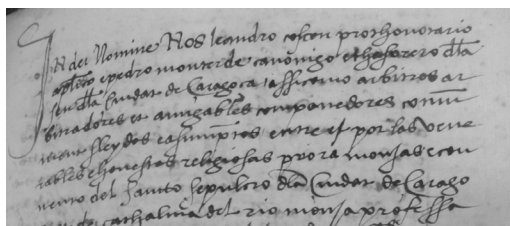 In dei Nomine Nos leandro coscon prothonotario
apco. e pedro monterde canonigo e thesorero dla
seu dla Ciudat de Caragoca assi como arbitros ar
bitradores et amigables componedores comun
ment sleydos e assumptos entre et por las vene
rables e honestas religiosas priora monjas e con
uento del sancto sepulcro dla Ciudat de Carago
de cathalina del rio monja professa